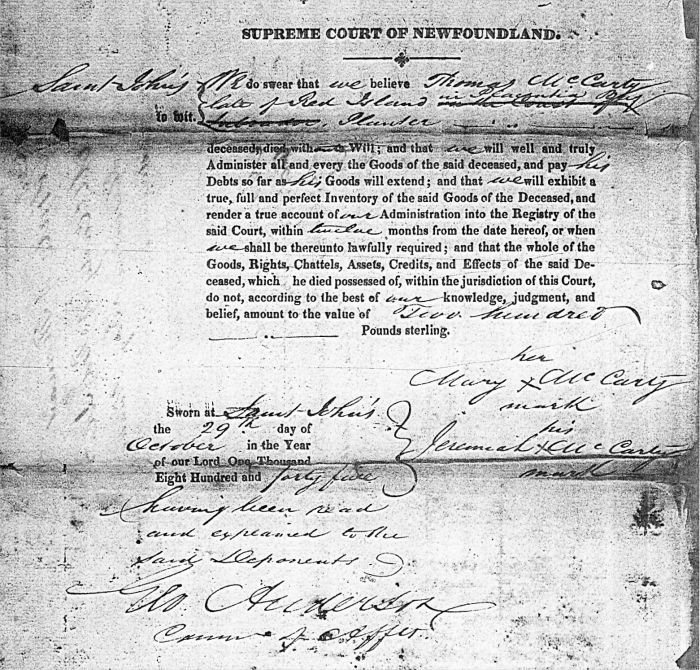 SUPREME COURT OF NEWFOUNDLAND.
Saint John's We do swear that we believe Thomas McCarty
late of Red Island in Placentia Bay
to wit. Labrador, Planter
deceased, died without Will; and that we will well and truly
Administer all and every the Goods of the said deceased, and pay his
Debts so far as his Goods will extend; and that we will exhibit a
true, full and perfect Inventory of the said Goods of the Deceased, and
render a true account of our Administration into the Registry of the
said Court, within twelve months from the date hereof, or when
we shall be thereunto lawfully required; and that the whole of the
Goods, Rights, Chattels, Assets, Credits, and Effects of the said De-
ceased, which he died possessed of, within the jurisdiction of this Court,
do not, according to the best of our knowledge, judgment, and
belief, amount to the value of Two hundred
Pounds sterling.
her
Mary x McCarty
mark
Sworn at Saint John's
the 29th day of
October in the Year
of our Lord One Thousand
Eight Hundred and forty five
his
Jeremiah x McCarty
mark
having been read
and explained to the
said Deponents
Geo Anderson
Commr of Affts.